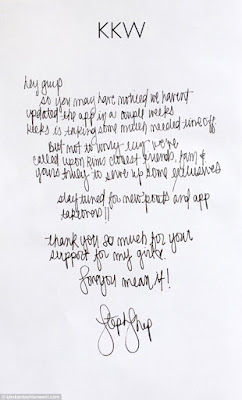 KKW
hey guys
so you may have noticed we haven't
updated the app in a couple weeks
keeks is taking some much needed time off
but not to worry cuz we're
called upon Kim's closest friends, fam &
yours truly to serve up some exclusives
stay tuned for new posts and app
takeovers!!
thank you so much for your
support for my girl.
love you mean it!
Steph Shep